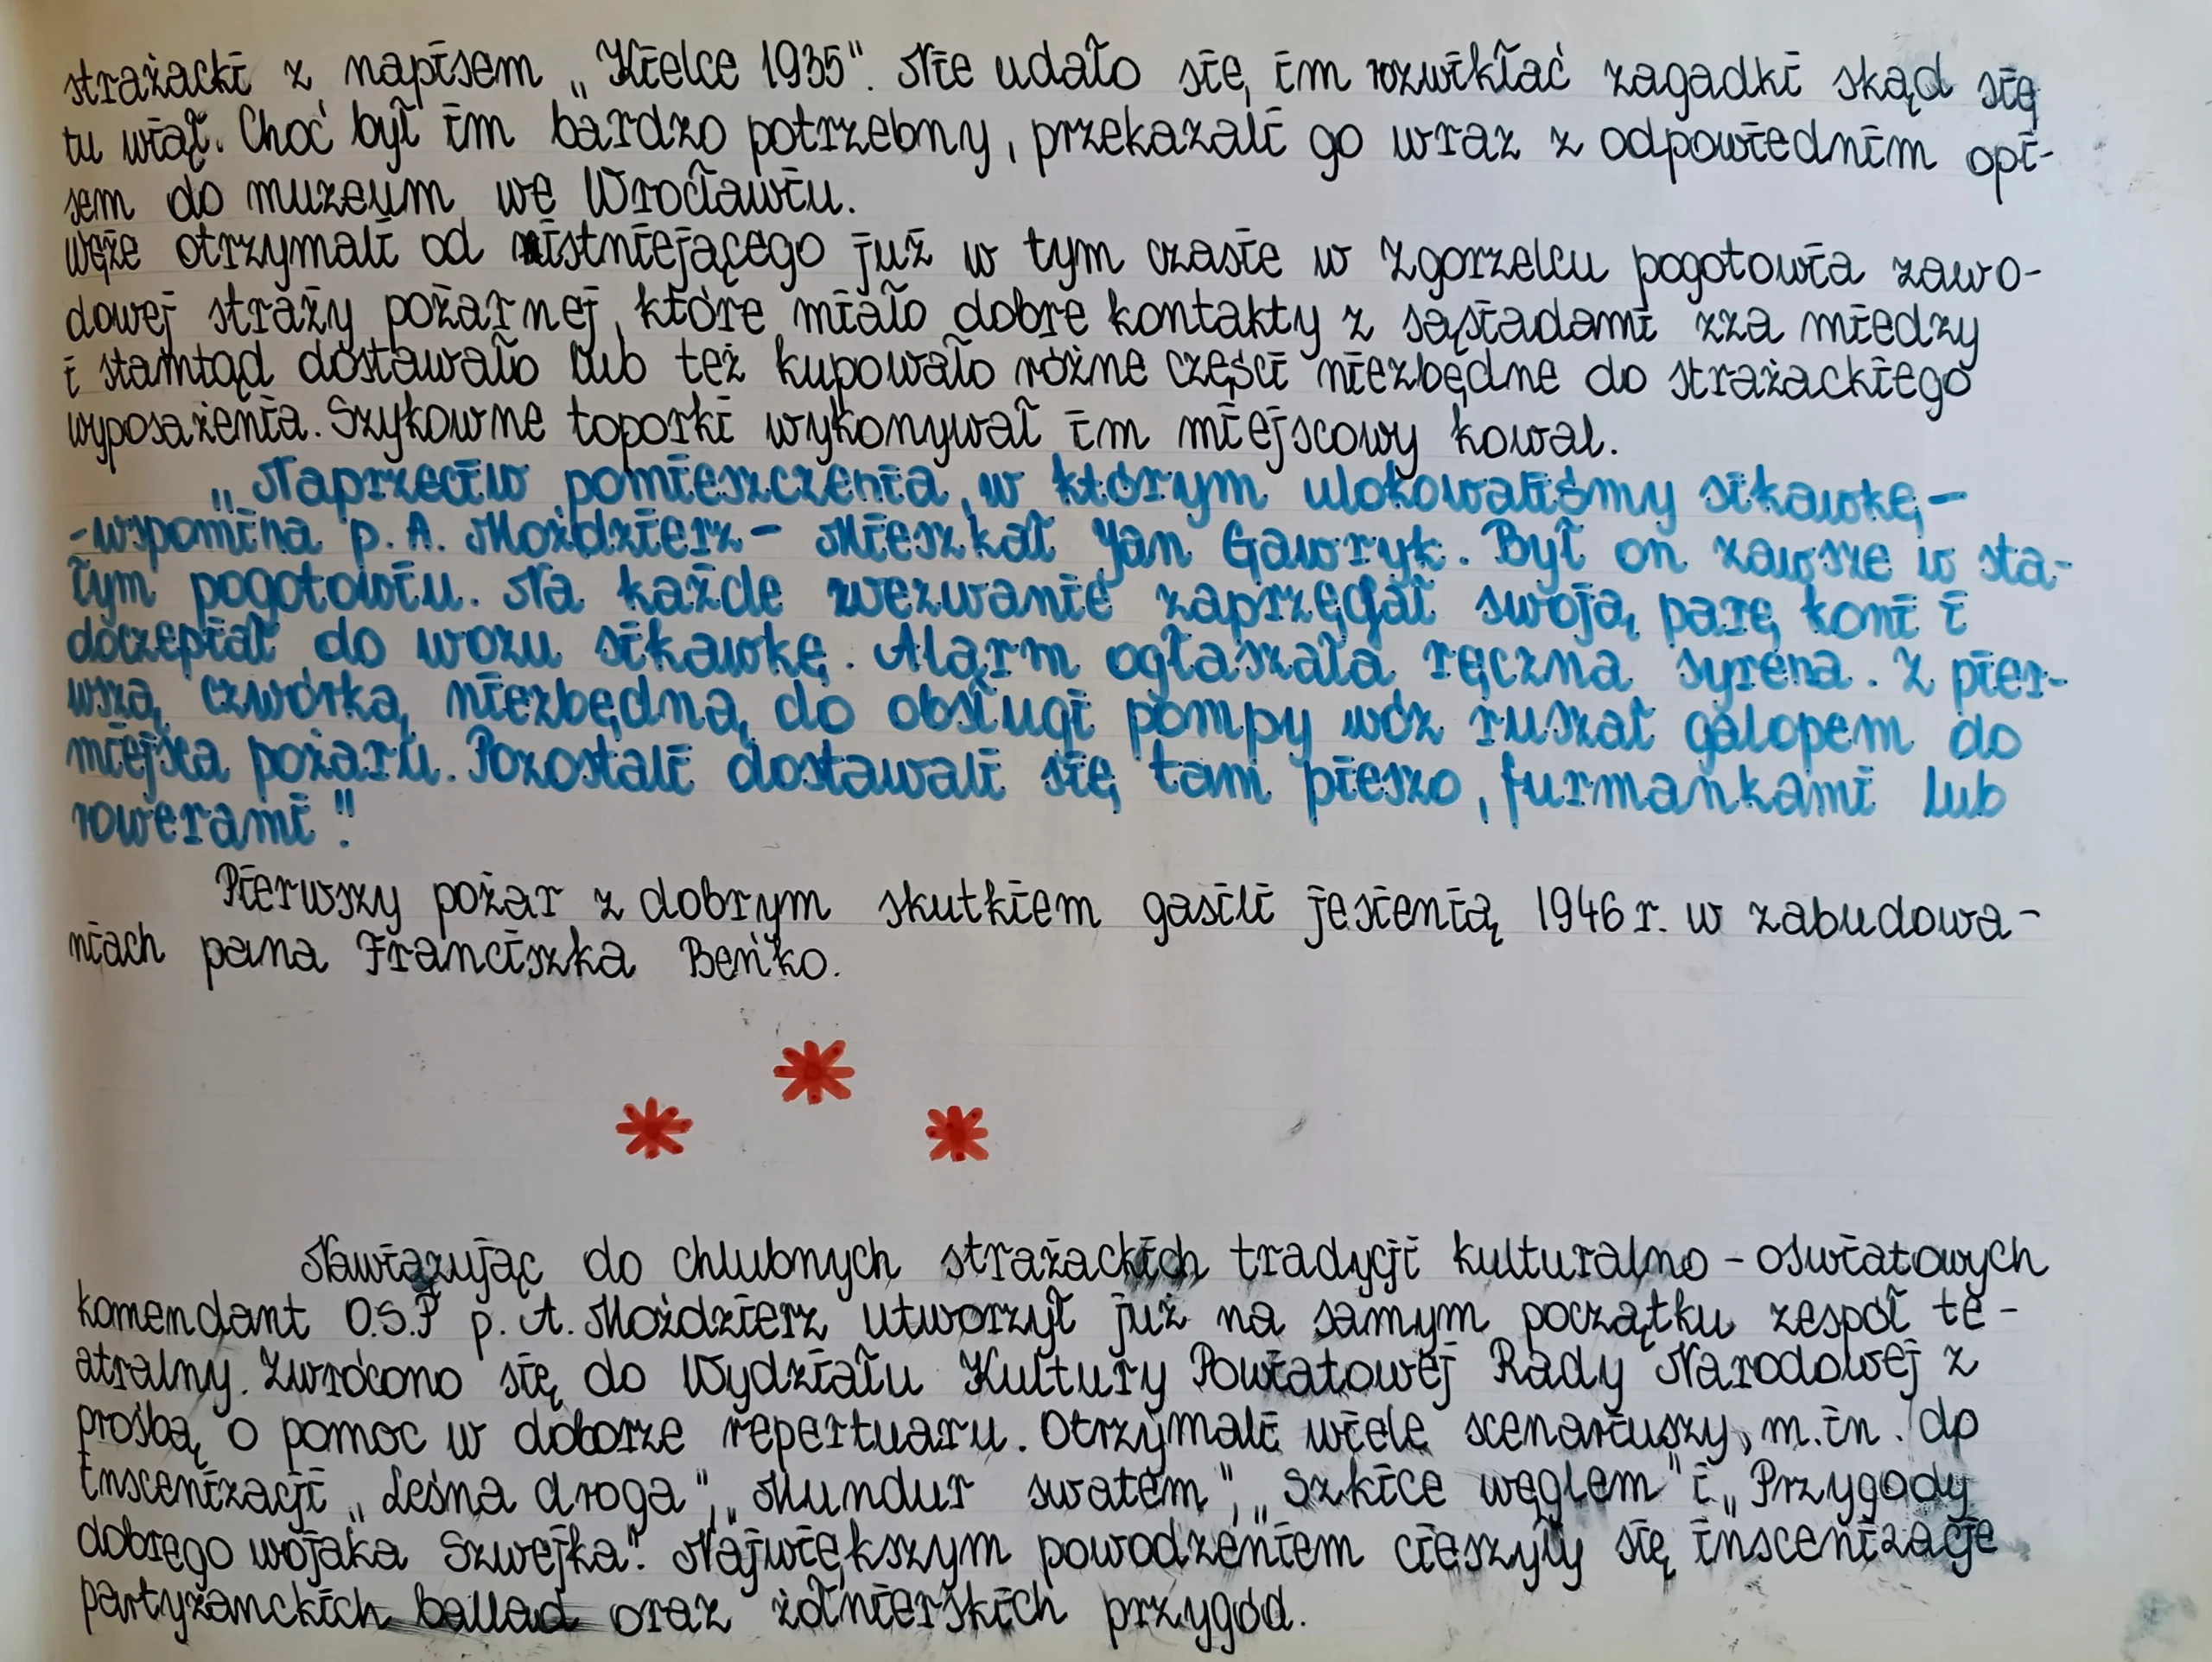 strażacki z napisem „Kielce 1935". Nie udało się im rozwikłać zagadki skąd się
tu wiął. Choć był im bardzo potrzebny, przekazali go wraz z odpowiednim opi-
sem do muzeum we Wrocławiu.
węże otrzymali od istniejącego już w tym czasie w Zgorzelcu pogotowia zawo-
dowej straży pożarnej, które miało dobre kontakty z sąsiadami zza miedzy
i stamtąd dostawało lub też kupowało różne części niezbędne do strażackiego
wyposażenia. Szykowne toporki wykonywał im miejscowy kowal.
„Naprzeciw pomieszczenia, w którym ulokowaliśmy sikawkę -
-wspomina p. A. Moździerz - Mieszkał Jan Gawryk. Był on zawsze w sta-
łym pogotowiu. Na każde wezwanie zaprzęgał swoją parę koni i
doczepiał do wozu sikawkę. Alarm ogłaszała ręczna syrena. Z pier-
wszą czwórką niezbędną do obsługi pompy wóz ruszał galopem do
miejsca pożaru. Pozostali dostawali się tam pieszo, furmankami lub
rowerami"
Pierwszy pożar z dobrym skutkiem gasili jesienią 1946 r. w zabudowa-
niach pana Franciszka Beńko.
Nawiązując do chlubnych strażackich tradycji kulturalno - oświatowych
komendant O.S.P p. A. Moździerz utworzył już na samym początku zespół te-
atralny. Zwrócono się do Wydziału Kultury Powiatowej Rady Narodowej z
prośbą o pomoc w doborze repertuaru. Otrzymali wiele scenariuszy, m.in. do
inscenizacji „Leśna droga", „Mundur swatem", „Szkice węglem" i „Przygody
dobrego wojaka Szwejka". Największym powodzeniem cieszyły się inscenizacje
partyzanckich ballad oraz żołnierskich przygód.